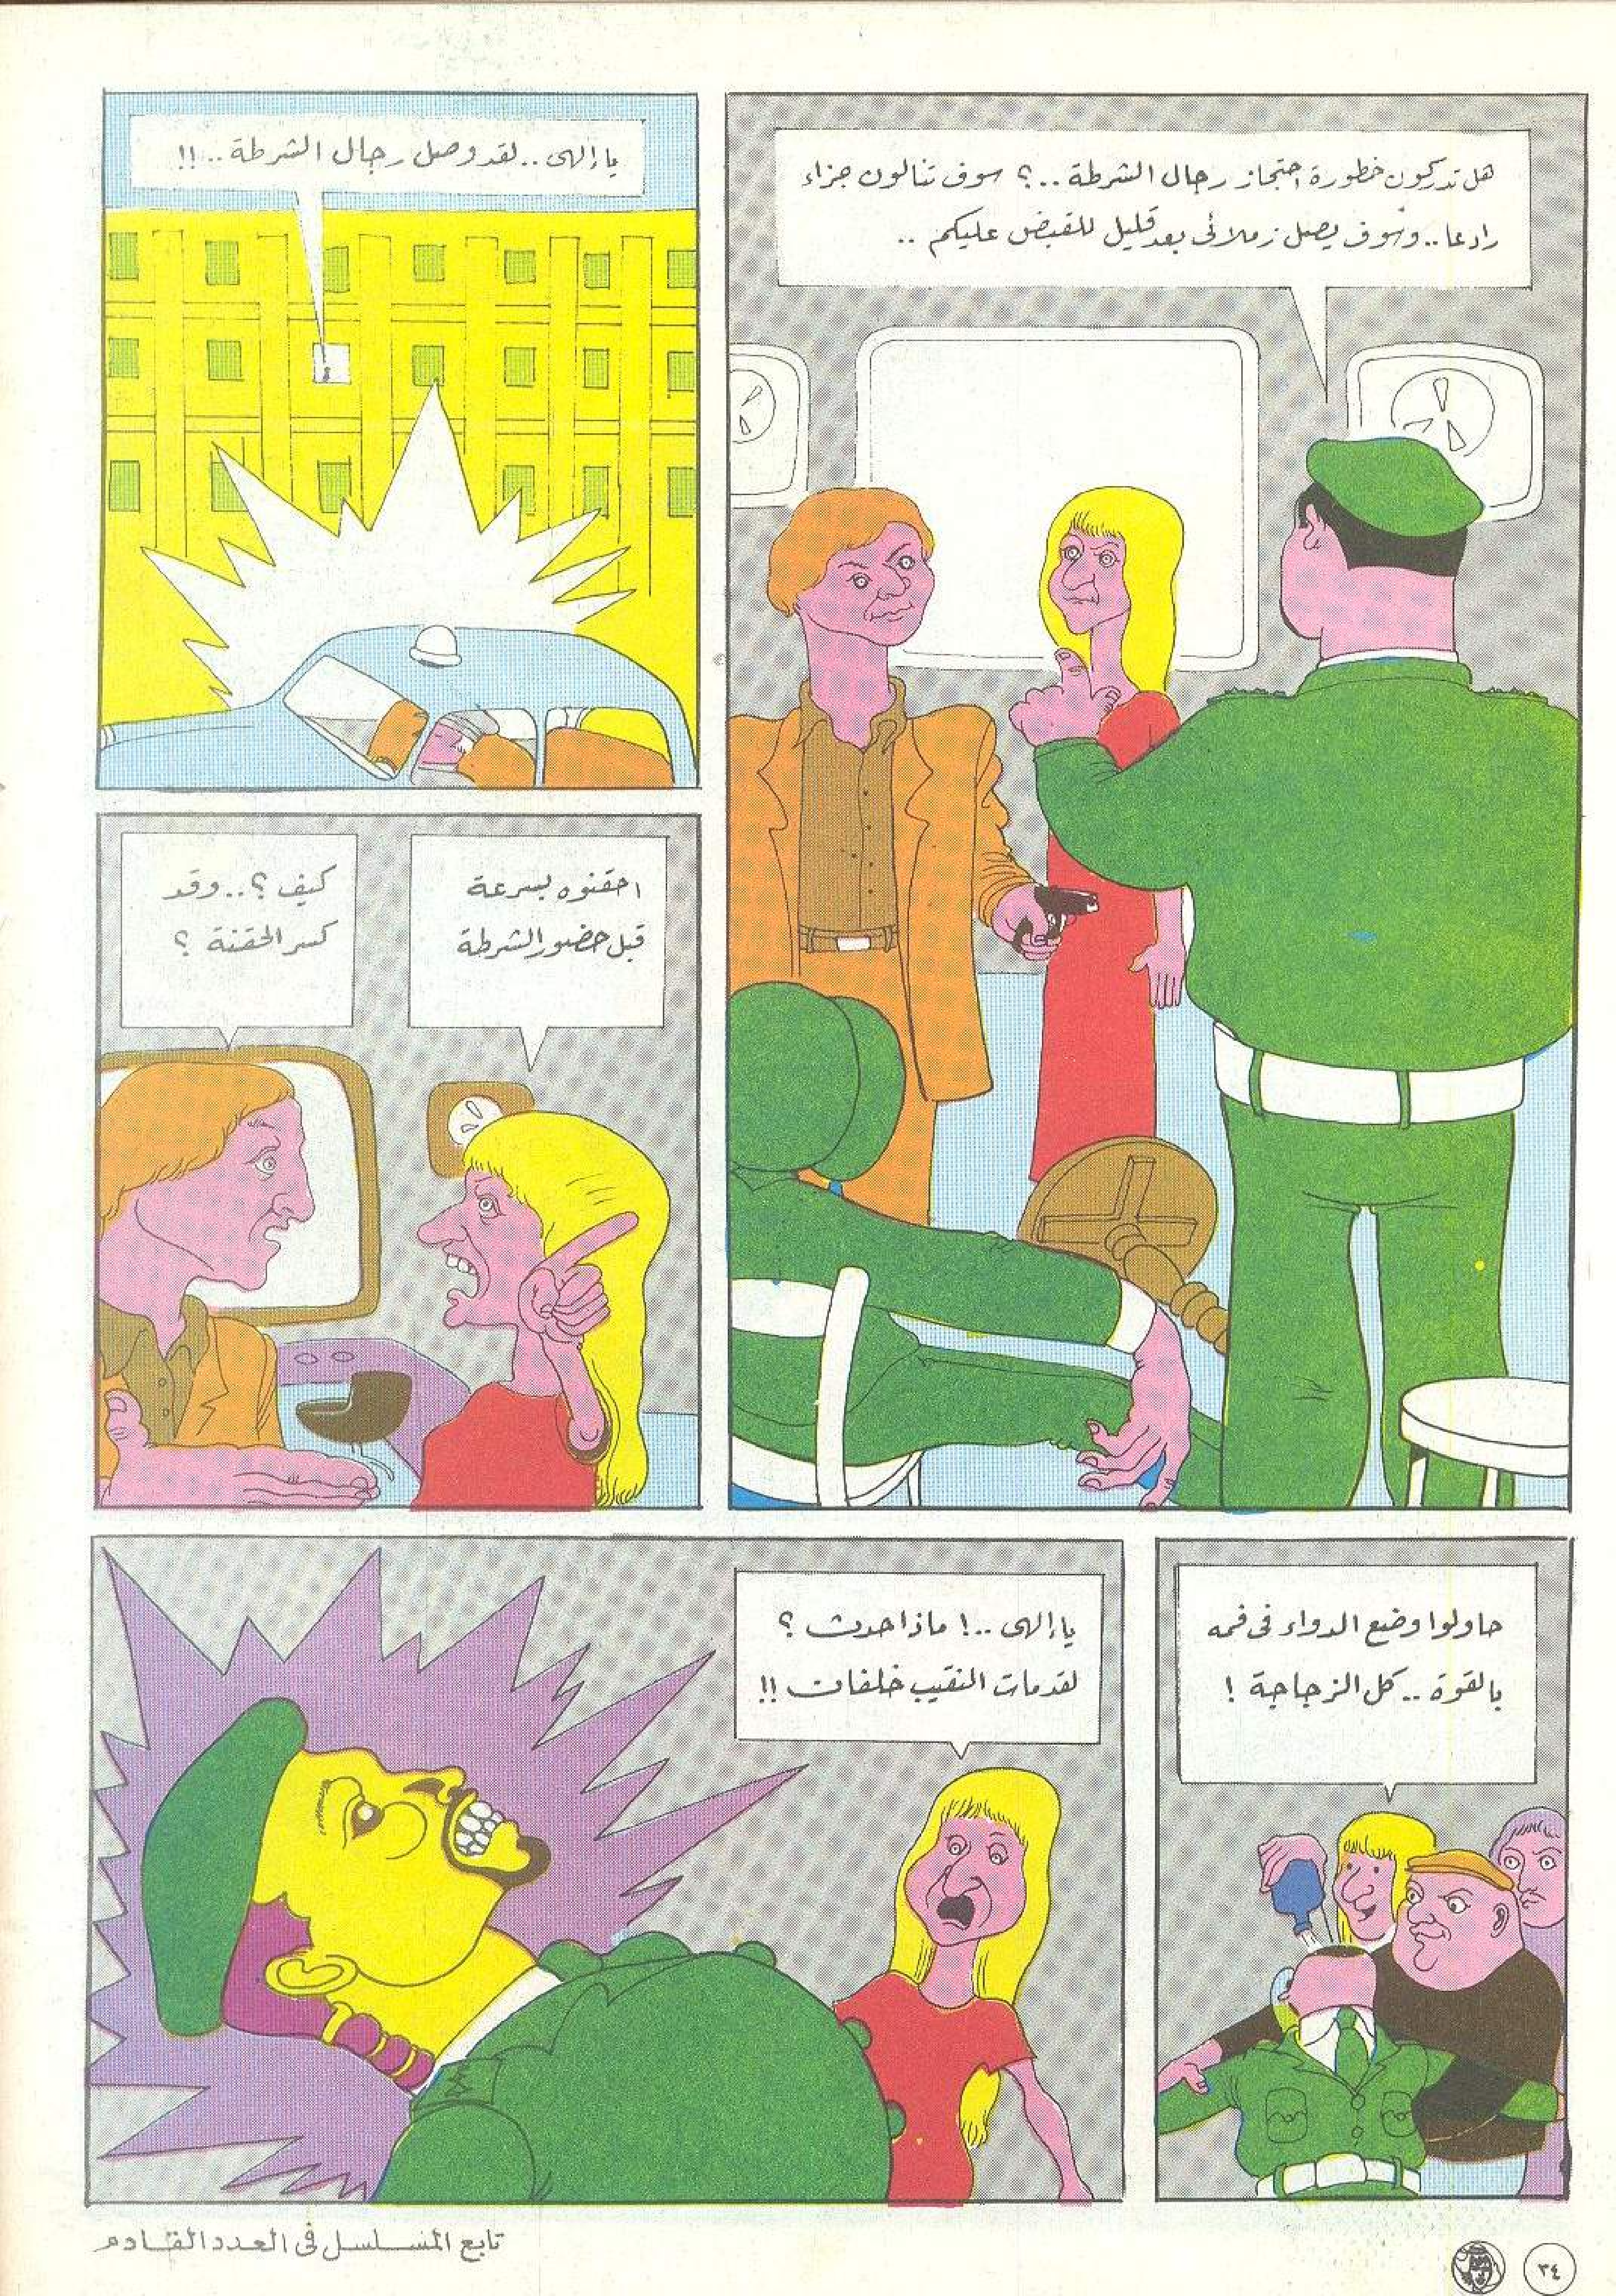 هل تدركون خطورة احتجاز رجال الشرطة ..؟ سوف تنالون جزاء
رادعا .. وسوف يصل زملائى بعد قليل للقبض عليكم ..
يا إلهى .. لقد وصل رجال الشرطة .. !!
احقنوه بسرعة
قبل حضور الشرطة
كيف ؟ .. وقد
كسر الحقنة ؟
حاولوا وضع الدواء فى فمه
بالقوة .. كل الزجاجة !
يا إلهى ..! ماذا حدث ؟
لقد مات النقيب خلفان !!
تابع المسلسل فى العدد القادم
٣٤